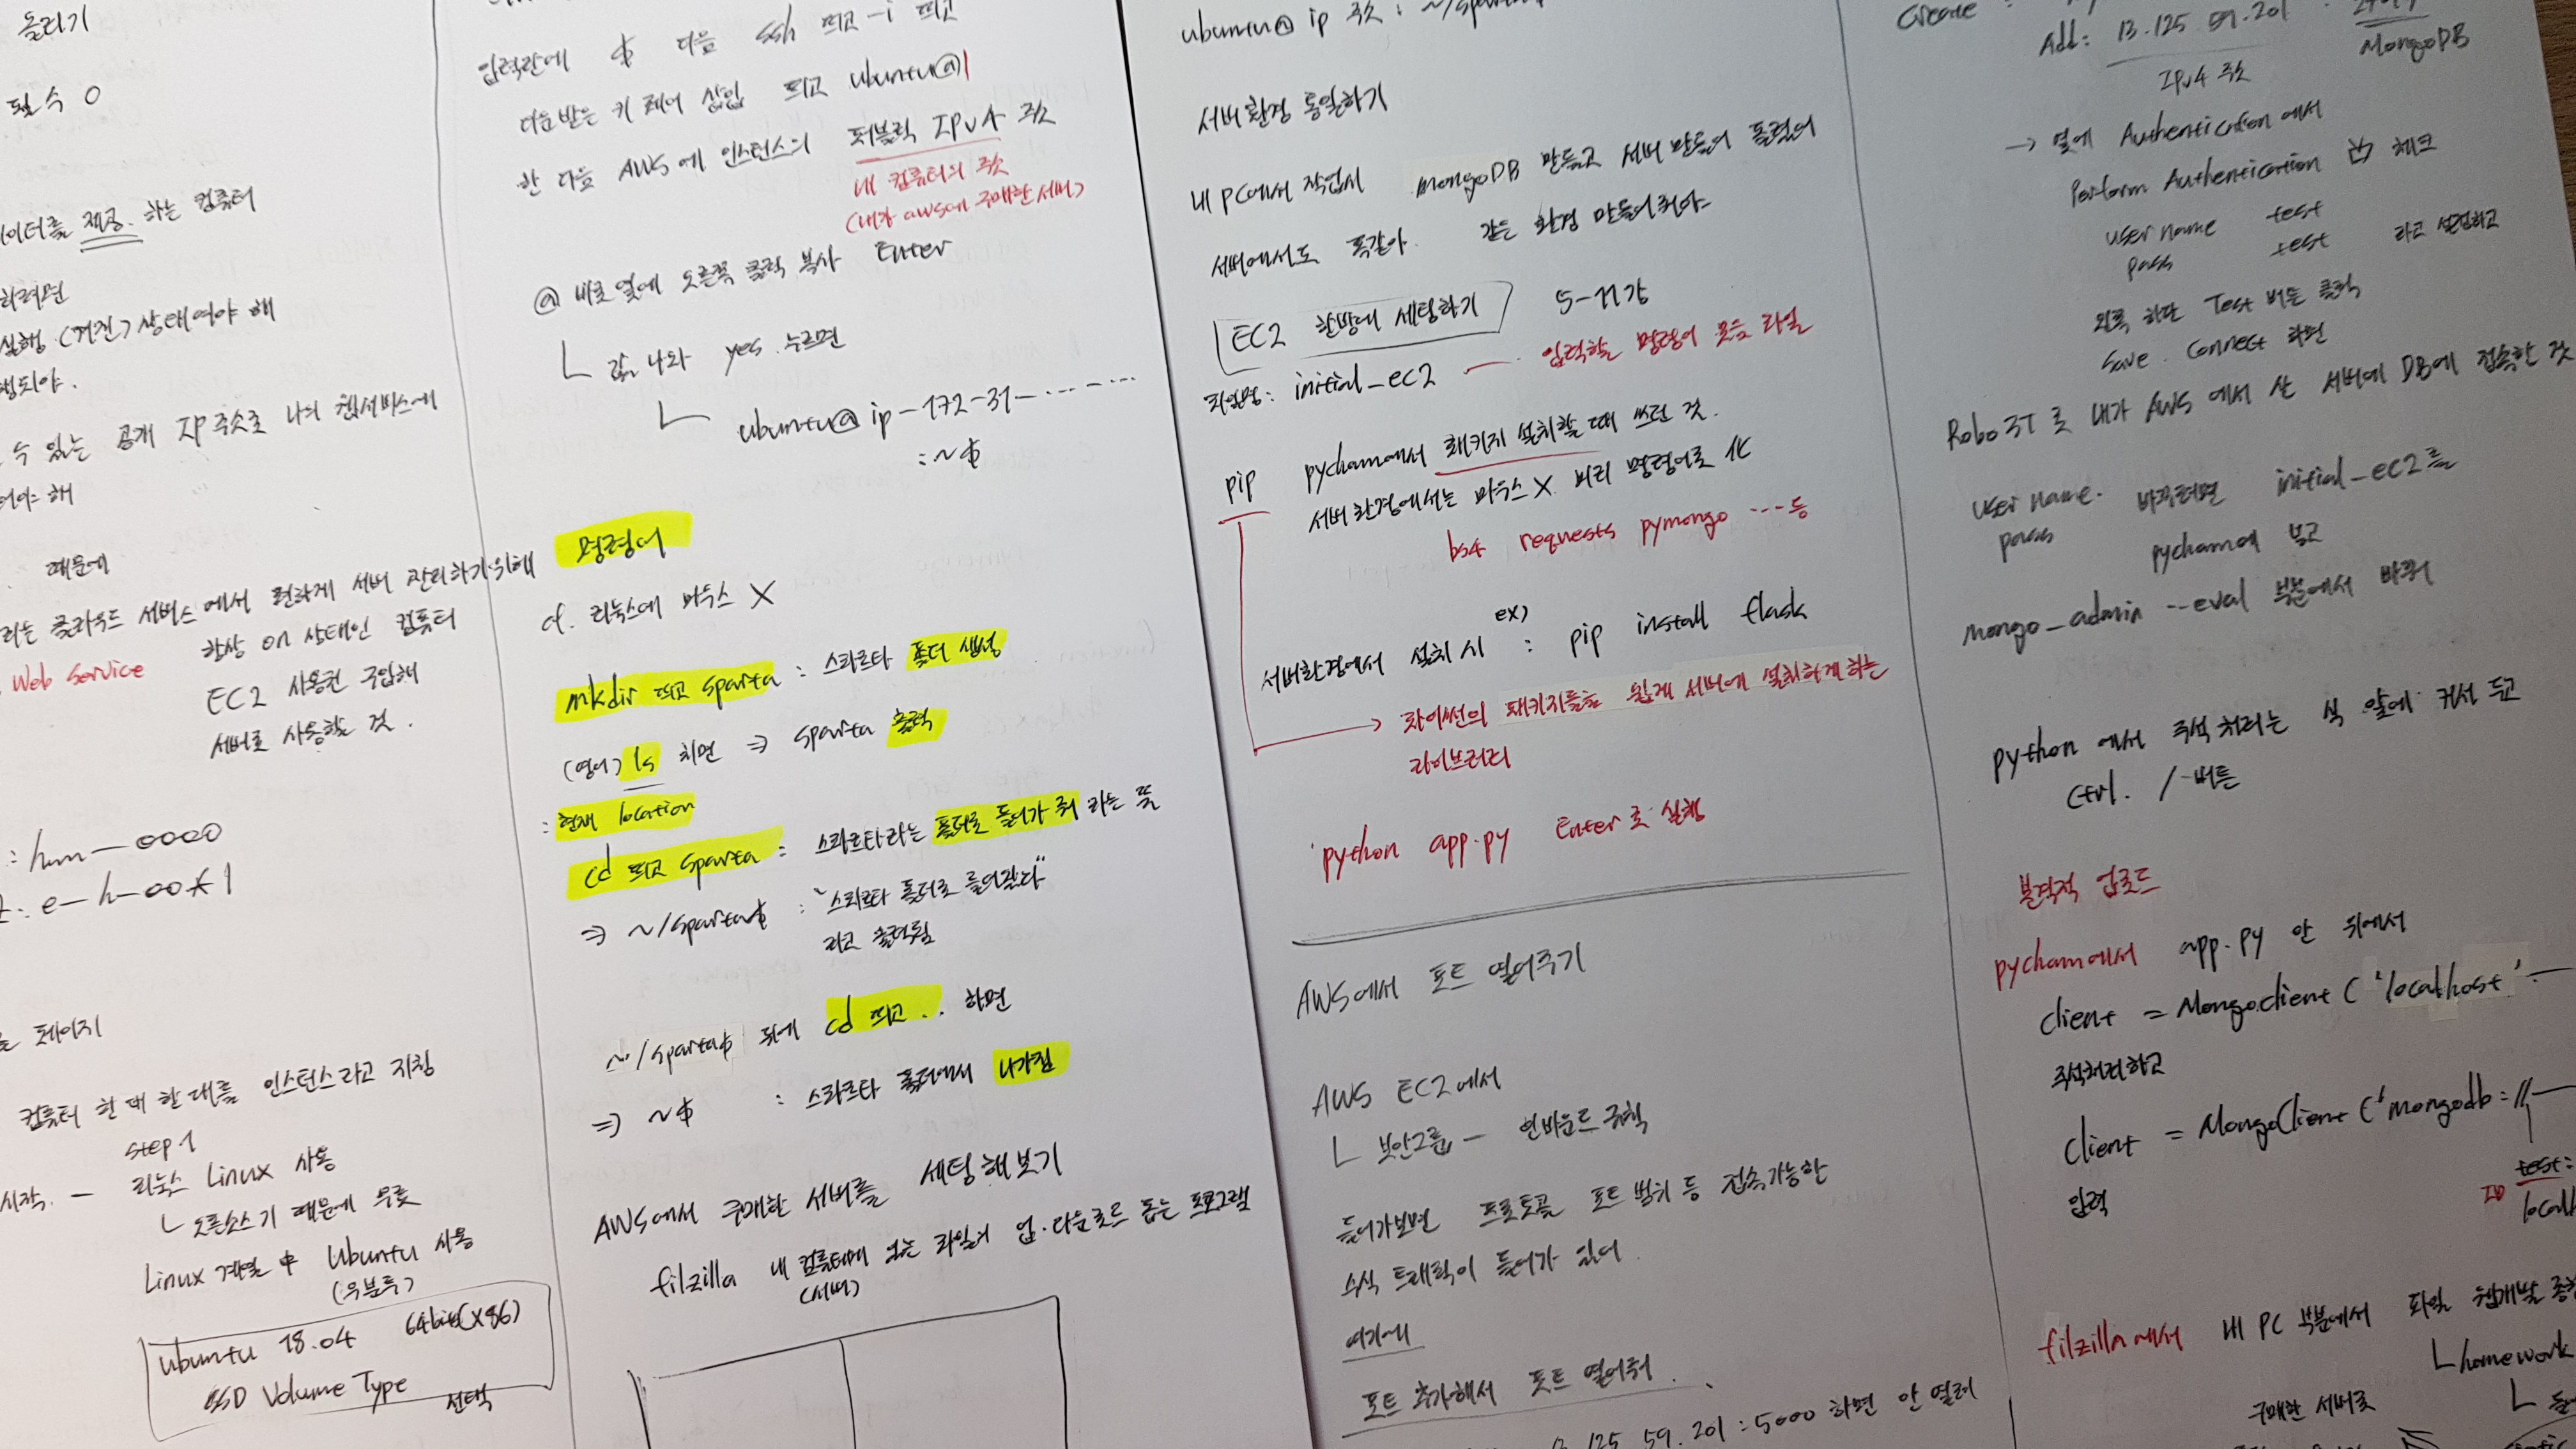 돌리기
필수 O
이터를 제공하는 컴퓨터
하려면
실행 (켜진) 상태여야 해
수 있는 공개 IP주소로 나의 웹서비스에
해
때문에
라는 클라우드 서비스에서 편하게 서버 관리하기위해
Web Service
항상 on 상태인 컴퓨터
EC2 사용권 구입해
서버로 사용할 것.
페이지
컴퓨터 한 대 한 대를 인스턴스라고 지칭
step 1
시작. — 리눅스 Linux 사용
ㄴ 오픈소스기 때문에 무료
Linux 계열 中 Ubuntu 사용
(우분투)
ubuntu 18.04 64bit(x86)
SSD Volume Type 선택
입력란에 $ 다음 ssh 띄고 -i 띄고
다운받은 키 페어 삽입 띄고 ubuntu@
한 다음 AWS에 인스턴스의 퍼블릭 IPv4 주소
내 컴퓨터의 주소
(내가 aws에 구매한 서버)
@ 바로 옆에 오른쪽 클릭 복사 Enter
ㄴ 값 나와 yes 누르면
ㄴ ubuntu@ip-172-31-...-...
:~$
명령어
cf. 리눅스에 마우스 X
mkdir 띄고 sparta : 스파르타 폴더 생성
(영어) ls 치면 ⇒ sparta 출력
: 현재 location
cd 띄고 sparta : 스파르타라는 폴더로 들어가 줘 라는 뜻
⇒ ~/sparta$ : "스파르타 폴더로 들어갔다"
라고 출력됨
~/sparta$ 뒤에 cd 띄고 .. 하면
⇒ ~$ : 스파르타 폴더에서 나가짐
AWS에서 구매한 서버를 세팅해보기
filzilla 내 컴퓨터에 있는 파일의 업·다운로드 돕는 프로그램
(서버)
ubuntu@ip 주소 : ~/sparta$
서버환경 통일하기
내 PC에서 작업시 mongoDB 만들고 서버 만들어 돌렸어
서버에서도 똑같아 같은 환경 만들어줘야
EC2 한방에 세팅하기 5-11강
파일명: initial_ec2 — 입력할 명령어 모음 파일
pip pycham에서 패키지 설치할 때 쓰던 것.
서버환경에서는 마우스 X 미리 명령어로
bs4 requests pymongo ... 등
서버환경에서 설치시 ex) : pip install flask
→ 파이썬의 패키지들을 쉽게 서버에 설치하게 하는
라이브러리
python app.py Enter로 실행
AWS에서 포트 열어주기
AWS EC2에서
ㄴ 보안그룹 — 인바운드 규칙
들어가보면 프로토콜 포트 범위 등 접속가능한
수식 트래픽이 들어가 있어
여기에
포트 추가해서 포트 열어줘.
125 59.201 : 5000 하면 안 열려
Create :
Add: 13.125.59.201
MongoDB
IPv4 주소
→ 옆에 Authentication에서
Perform Authentication 체크
user name test
pass test 라고 설정하고
왼쪽 하단 Test 버튼 클릭
Save. Connect 하면
Robo 3T로 내가 AWS에서 산 서버에 DB에 접속한 것
user name. 바꾸려면 initial_ec2를
pass pycham에 넣고
mongo_admin --eval 부분에서 바꿔
python에서 주석처리는 식 앞에 커서 두고
Ctrl. / 버튼
본격적 업로드
pycham에서 app.py 안 위에서
client = Mongoclient ('localhost'
주석처리하고
client = MongoClient ('mongodb://
test:
입력
filzilla에서 내 PC 부분에서 파일 웹개발
ㄴ homework
구매한 서버로